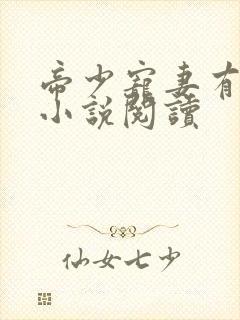 帝少寵妻有
小說閱讀
仙女七少